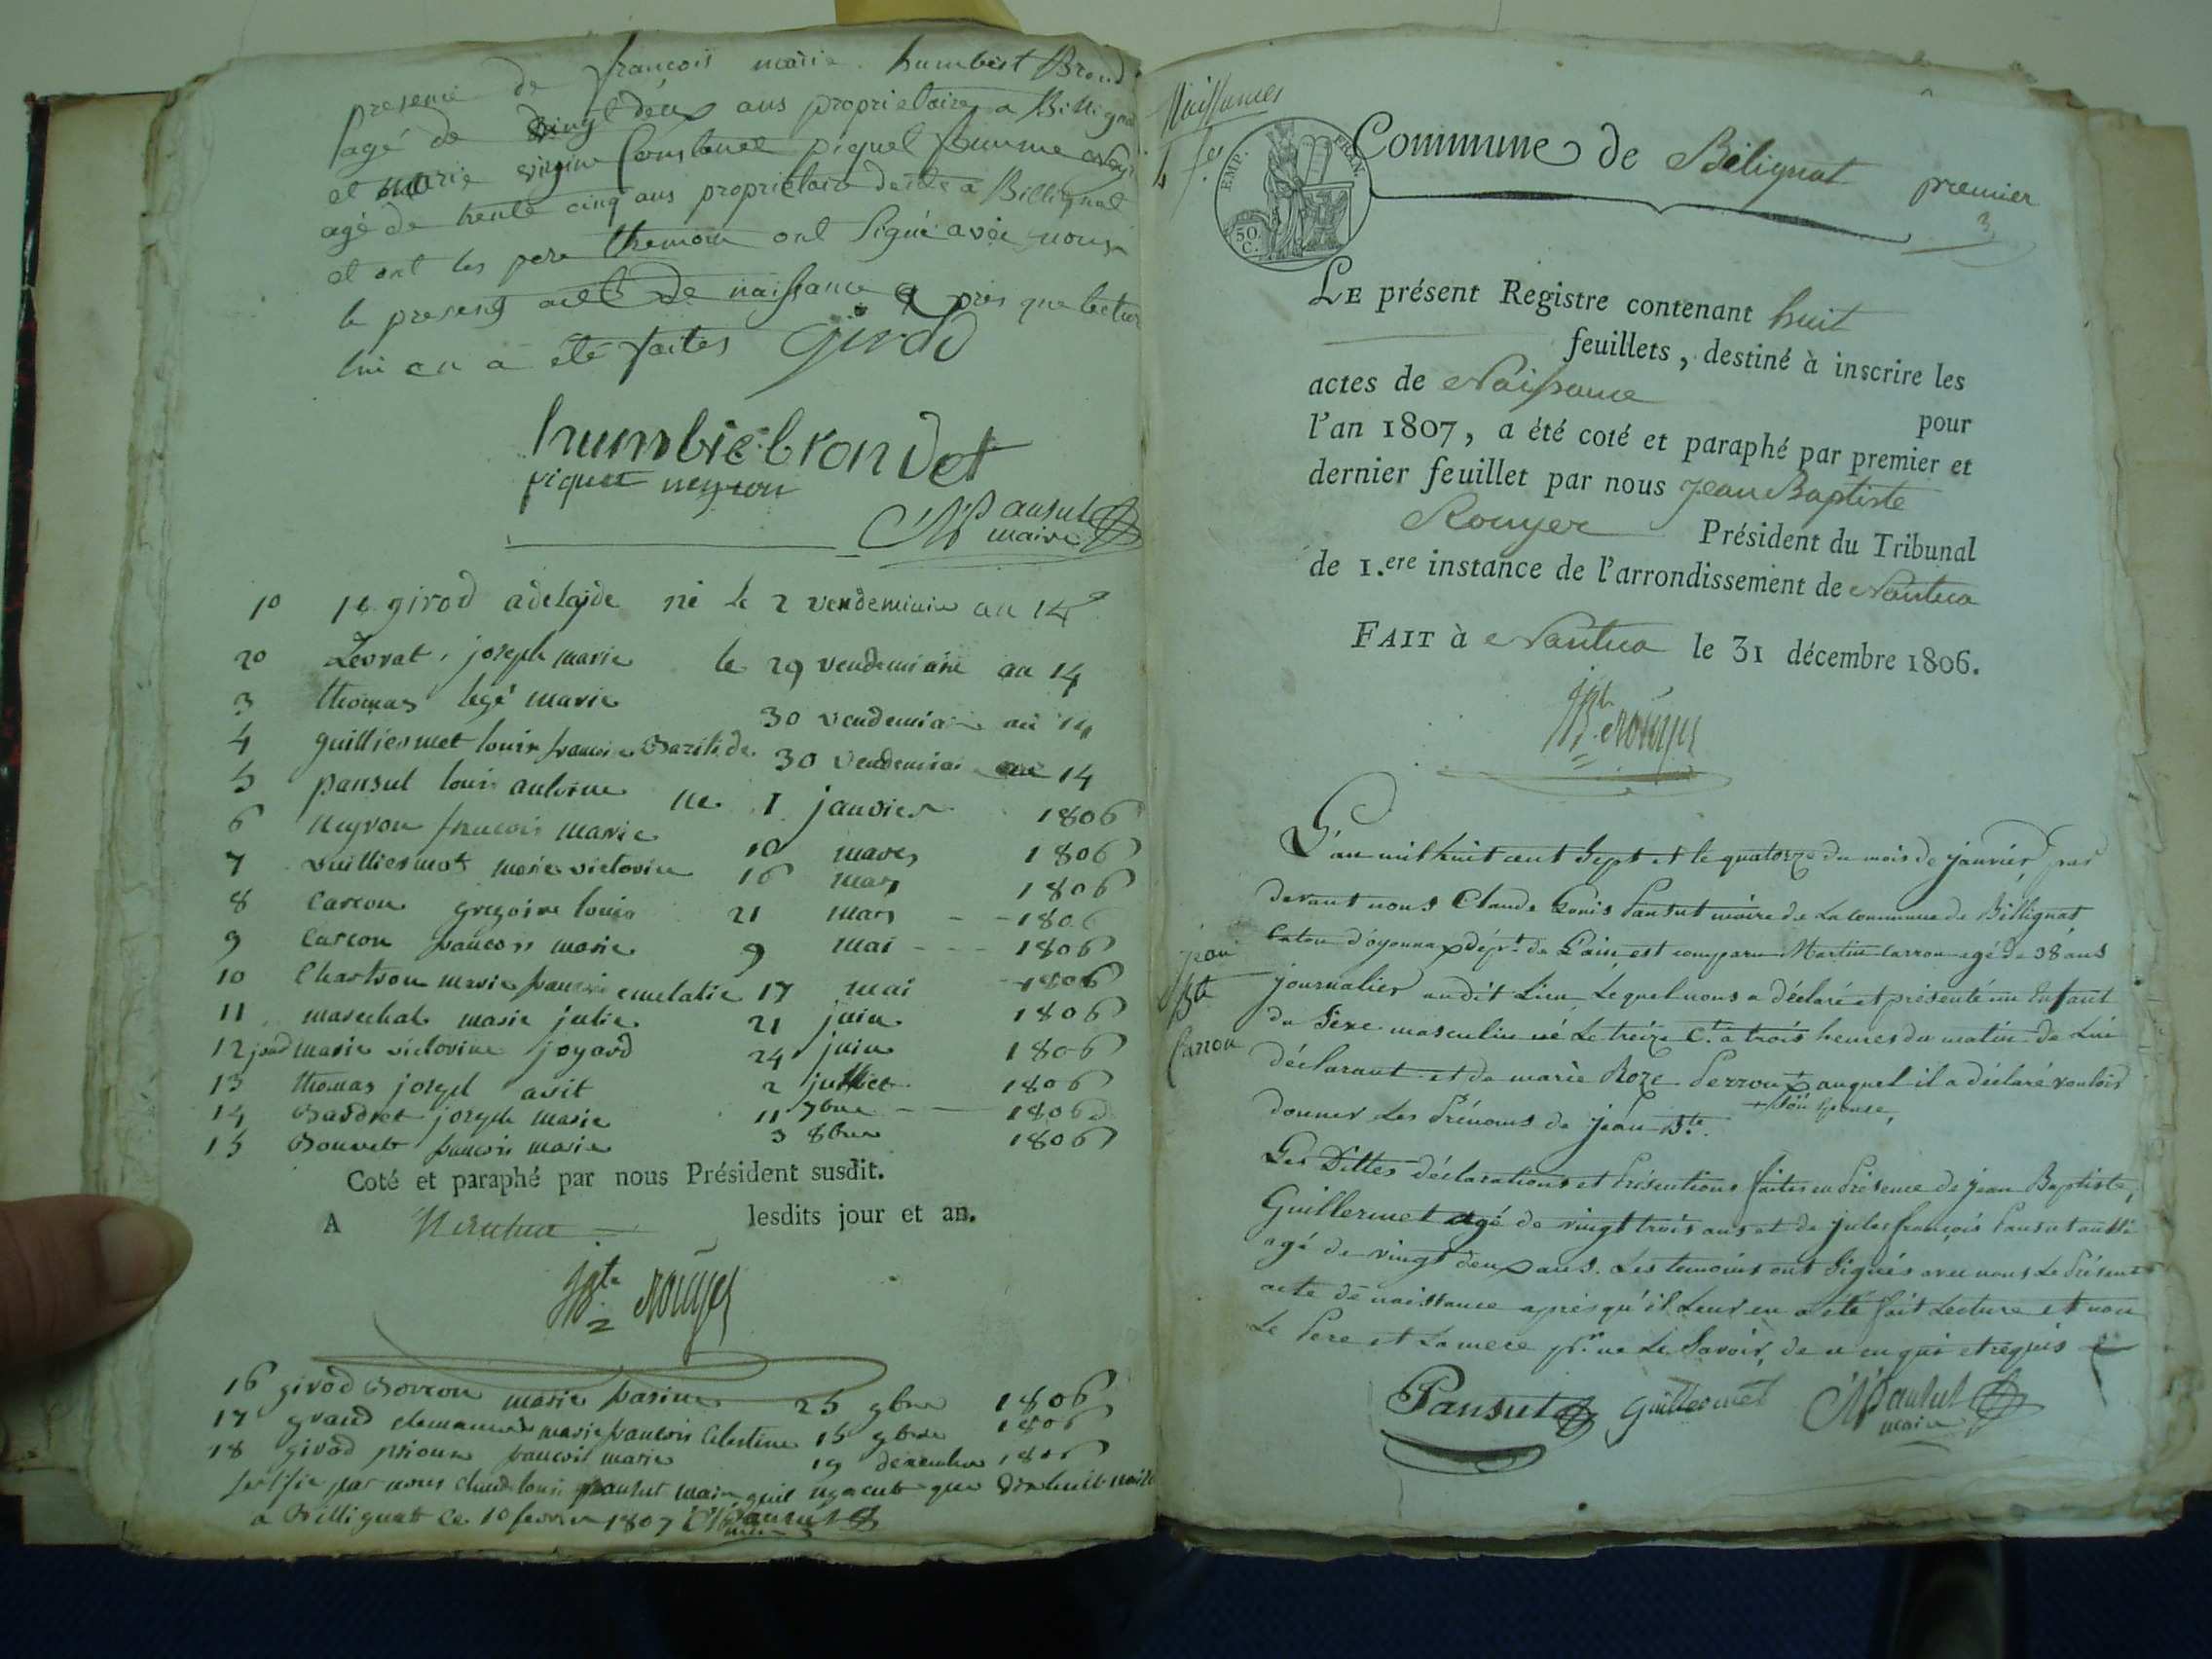 presence de françois marie humbert Brond
agé de vingt deux ans proprietaire a Billignat
et marie virgine Constance piquet femme
agé de trente cinq ans proprietaire a Billignat
et ont les pere themoin ont Signé avec nous
le present acte de naissance après que lecture
lui en a été faites girod
humbie brondet
piquet neyron
Pansut
maire
10 girod adelaide né le 2 vendemiaire an 14
20 Levrat joseph marie le 29 vendemiaire an 14
3 thomas marie 30 vendemiair an 14
4 guilliermet louis francois 30 vendemiai an 14
5 pansut louis antoine né 1 janvier 1806
6 neyron francois marie 10 mars 1806
7 vuilliermot marie victorine 16 mars 1806
8 Carron gregoire louis 21 mars - - 1806
9 Carron francois marie 9 mai - - - 1806
10 Charlson marie francois emelatie 17 mai - 1806
11 marechal marie julie 21 juin 1806
12 marie victorine joyard 24 juin 1806
13 thomas joseph avit 2 juillet 1806
14 Baudret joseph marie 11 7bre - - 1806
15 Bouvet francois marie 3 8bre 1806
Coté et paraphé par nous Président susdit.
A Nantua lesdits jour et an.
jbte rouyer
16 girod Borron marie 25 9bre 1806
17 grand clemanced marie francois Celestine 15 9bre 1806
18 girod prioux francois marie 19 decembre 1806
Certifie par nous Claude louis pansut maire quil
a Billignat Ce 10 fevrier 1807 Pansut
Naissances
4 f.es
EMP. FRAN.
50. C.
Commune de Bélignat
premier
3
LE présent Registre contenant huit
feuillets, destiné à inscrire les
actes de Naissance pour
l'an 1807, a été coté et paraphé par premier et
dernier feuillet par nous Jean Baptiste
Rouyer Président du Tribunal
de 1.ere instance de l'arrondissement de Nantua
FAIT à Nantua le 31 décembre 1806.
jbte rouyer
L'an mil huit cent Sept et le quatorze du mois de janvier, par
devant nous Claude Louis Pansut maire de La Commune de Billignat
Caton d'oyonnax dépt. de L'ain est comparu Martin Carron agé de 38 ans
journalier audit Lieu, Lequel nous a déclaré et présenté un Enfant
du Sexe masculin né Le treize Ct. à trois heures du matin de Lui
déclarant et de marie Roze Perroux auquel il a déclaré vouloir
+ Son Epouse,
donner Les Prénoms de jean Bte.
jean
Bte
Carron
Les Dittes déclarations et Présentions faites en Présence de jean Baptiste,
Guillermet agé de vingt trois ans et de jules françois Pansut aussi
agé de vingt deux ans. Les temoins ont Signés avec nous Le Présent
acte de naissance après qu'il Leur en a été fait Lecture et non
Le Pere et La mere pr. ne Le Savoir, de ce enquis et requis
Pansut Guillermet Pansut
maire